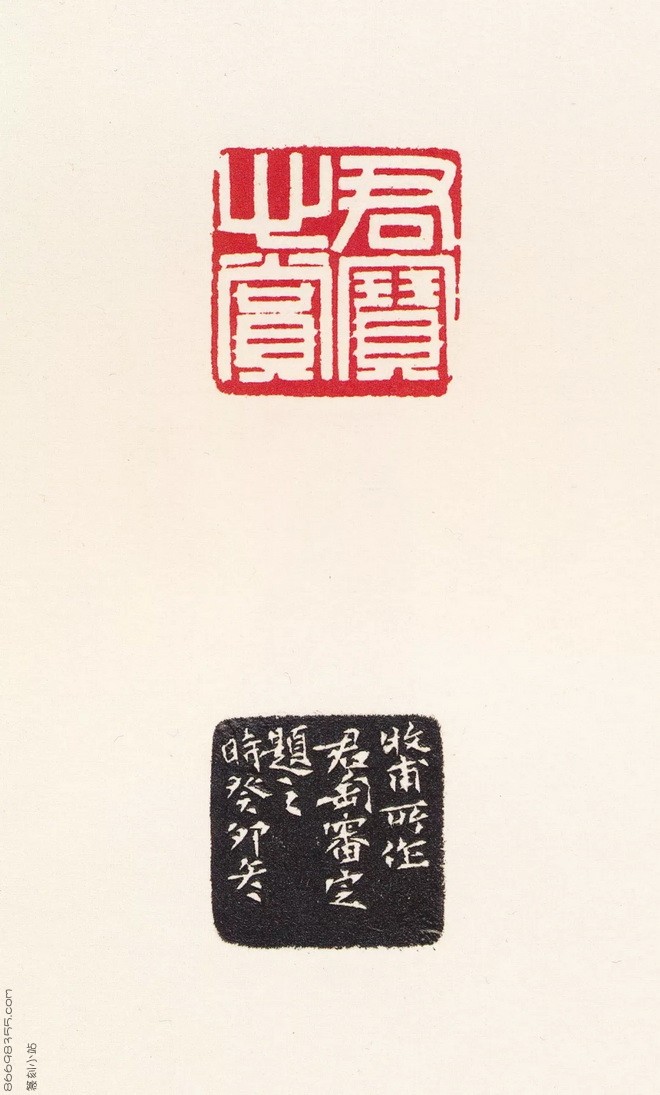 君實
之賞
牧甫所作
君匋審定
題之
時癸卯冬
86698355.com
篆刻小站